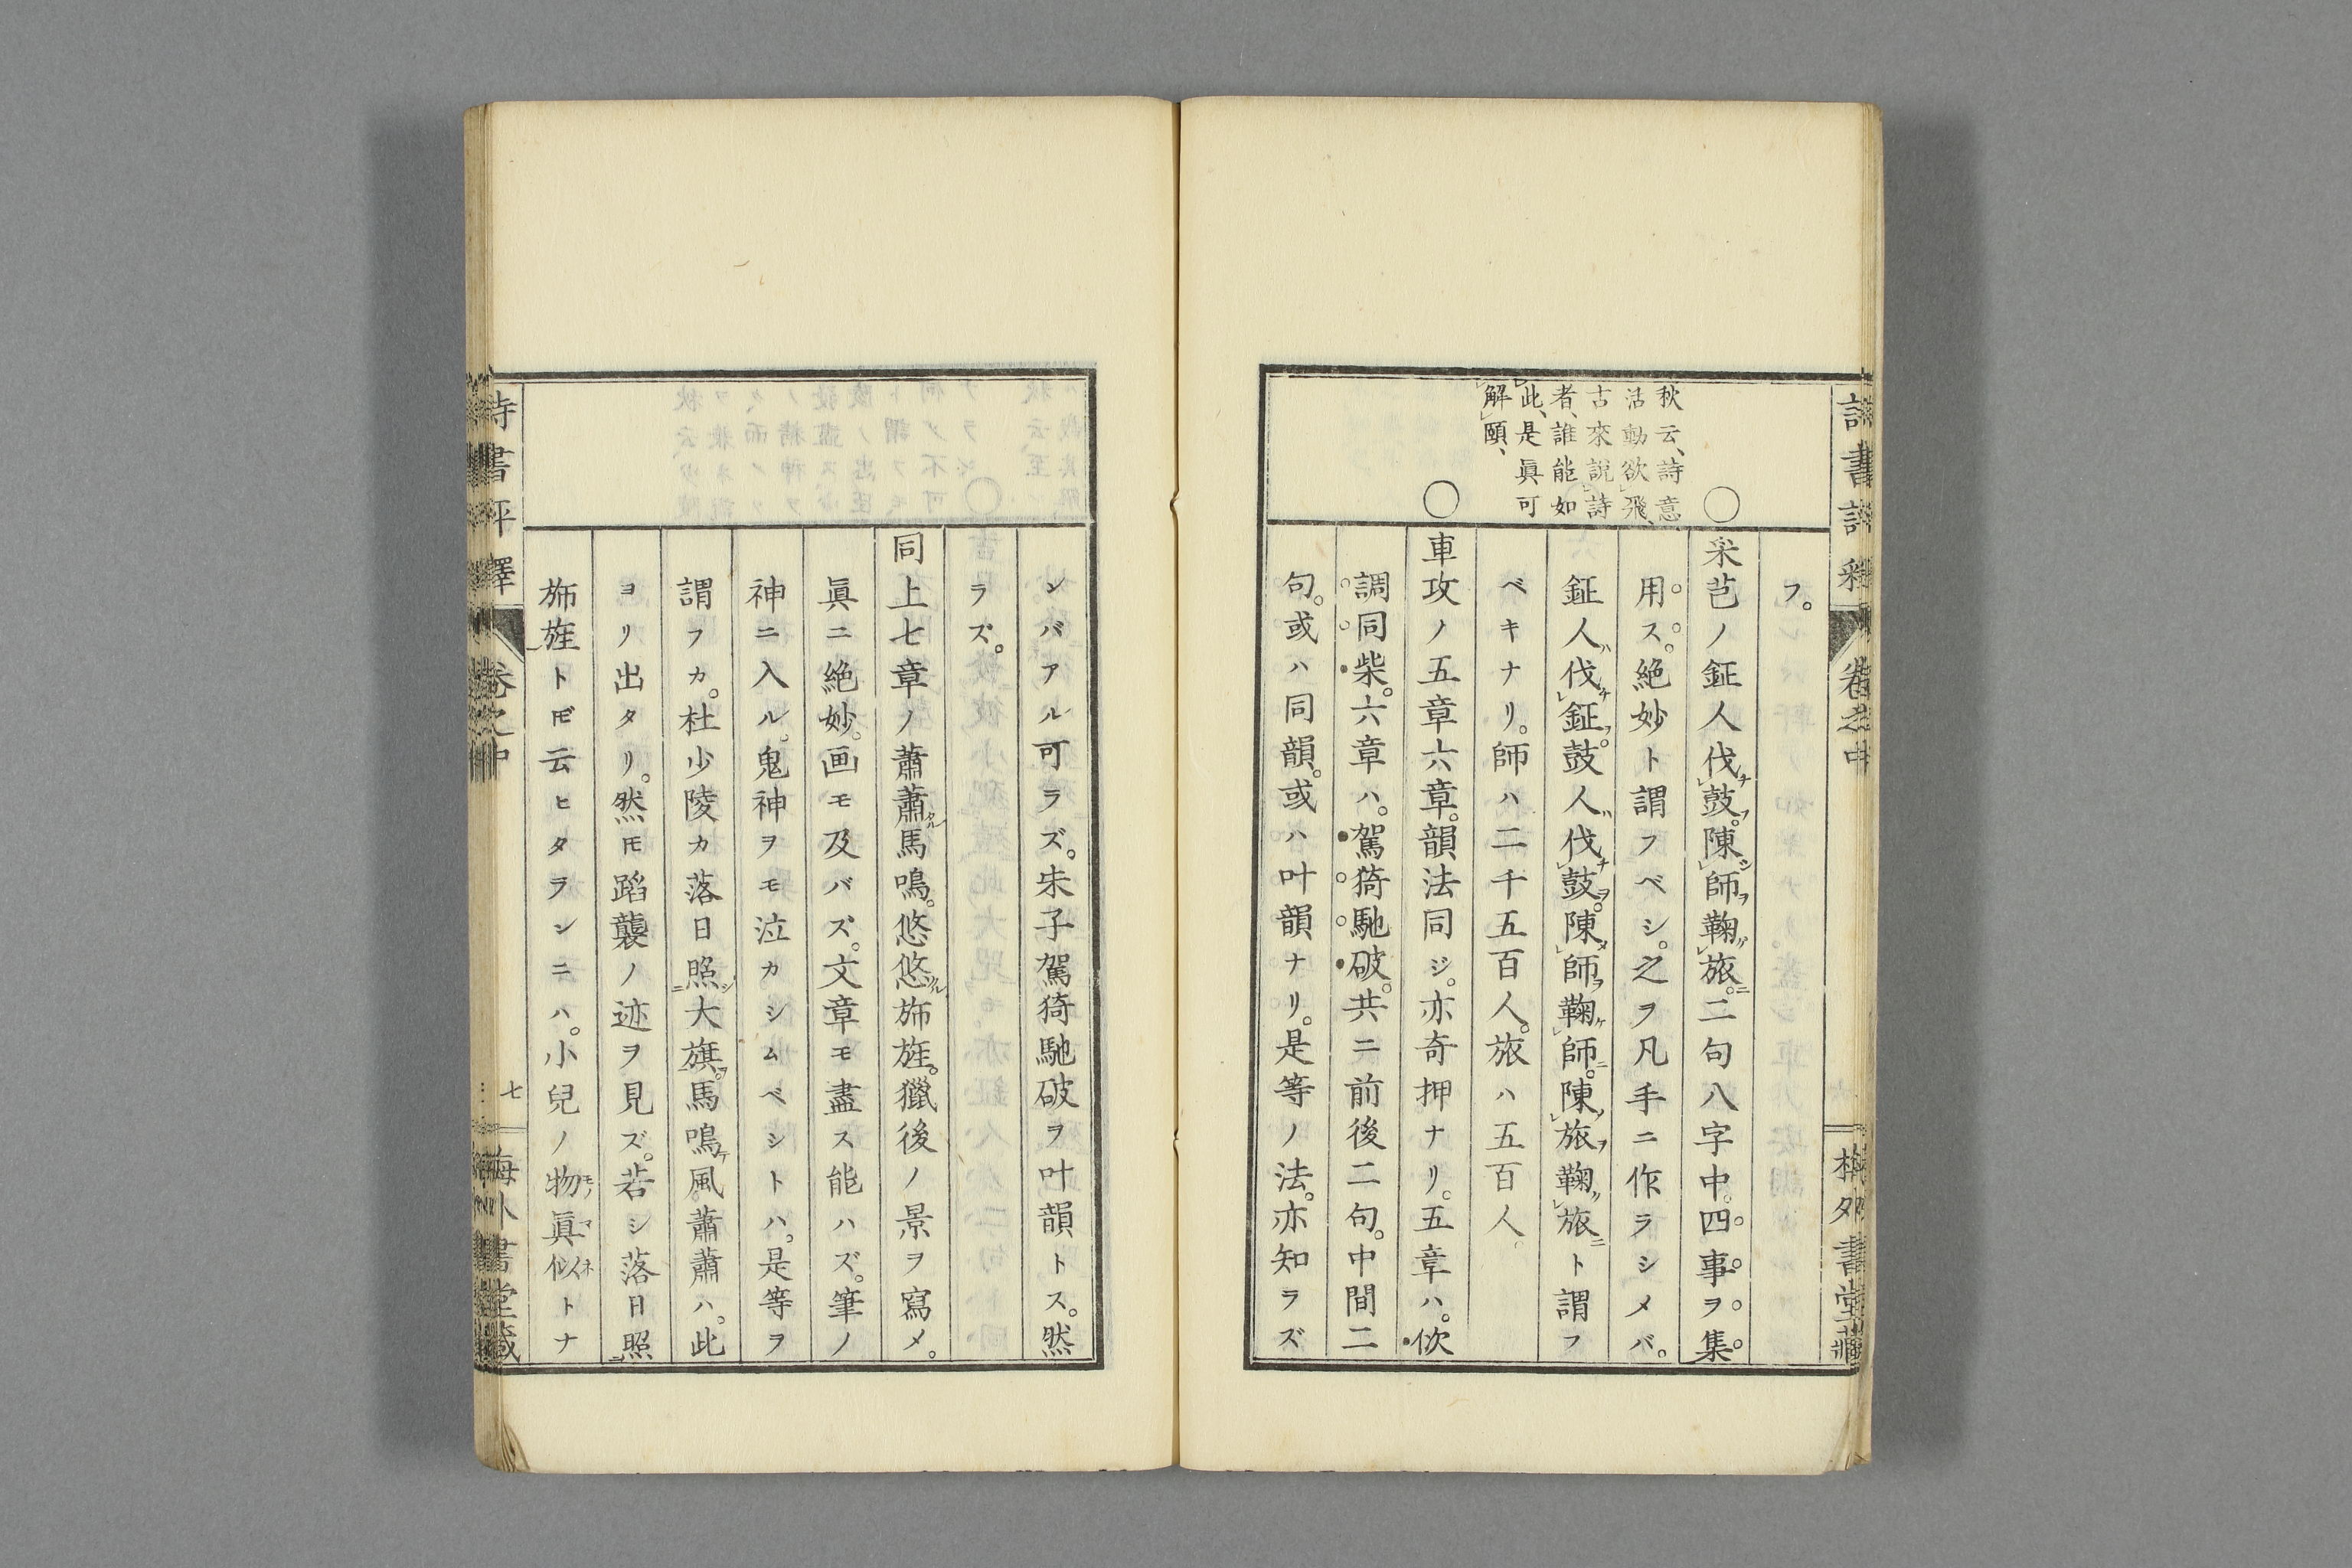 秋云、詩意
活動欲飛、
古來說詩
者、誰能如
此、是眞可
解頤、
フ。
采芑ノ鉦人伐鼓。陳師鞠旅。二句八字中。四事ヲ集。
用ス。絶妙ト謂フベシ。之ヲ凡手ニ作ラシメバ。
鉦人伐鉦。鼓人伐鼓。陳師鞠師。陳旅鞠旅ト謂フ
ベキナリ。師ハ二千五百人。旅ハ五百人。
車攻ノ五章六章。韻法同ジ。亦奇押ナリ。五章ハ。佽
調同柴。六章ハ。駕猗馳破。共ニ前後二句。中間二
句。或ハ同韻。或ハ叶韻ナリ。是等ノ法。亦知ラズ
ンバアル可ラズ。朱子駕猗馳破ヲ叶韻トス。然
ラズ。
同上七章ノ蕭蕭馬鳴。悠悠斾旌。獵後ノ景ヲ寫メ。
眞ニ絶妙。画モ及バズ。文章モ盡ス能ハズ。筆ノ
神ニ入ル。鬼神ヲモ泣カシムベシトハ。是等ヲ
謂フカ。杜少陵カ落日照大旗。馬鳴風蕭蕭ハ。此
ヨリ出タリ。然モ蹈襲ノ迹ヲ見ズ。若シ落日照
斾旌トモ云ヒタランニハ。小兒ノ物眞似トナ
詩書評釋
卷之中
七
梅外書堂藏